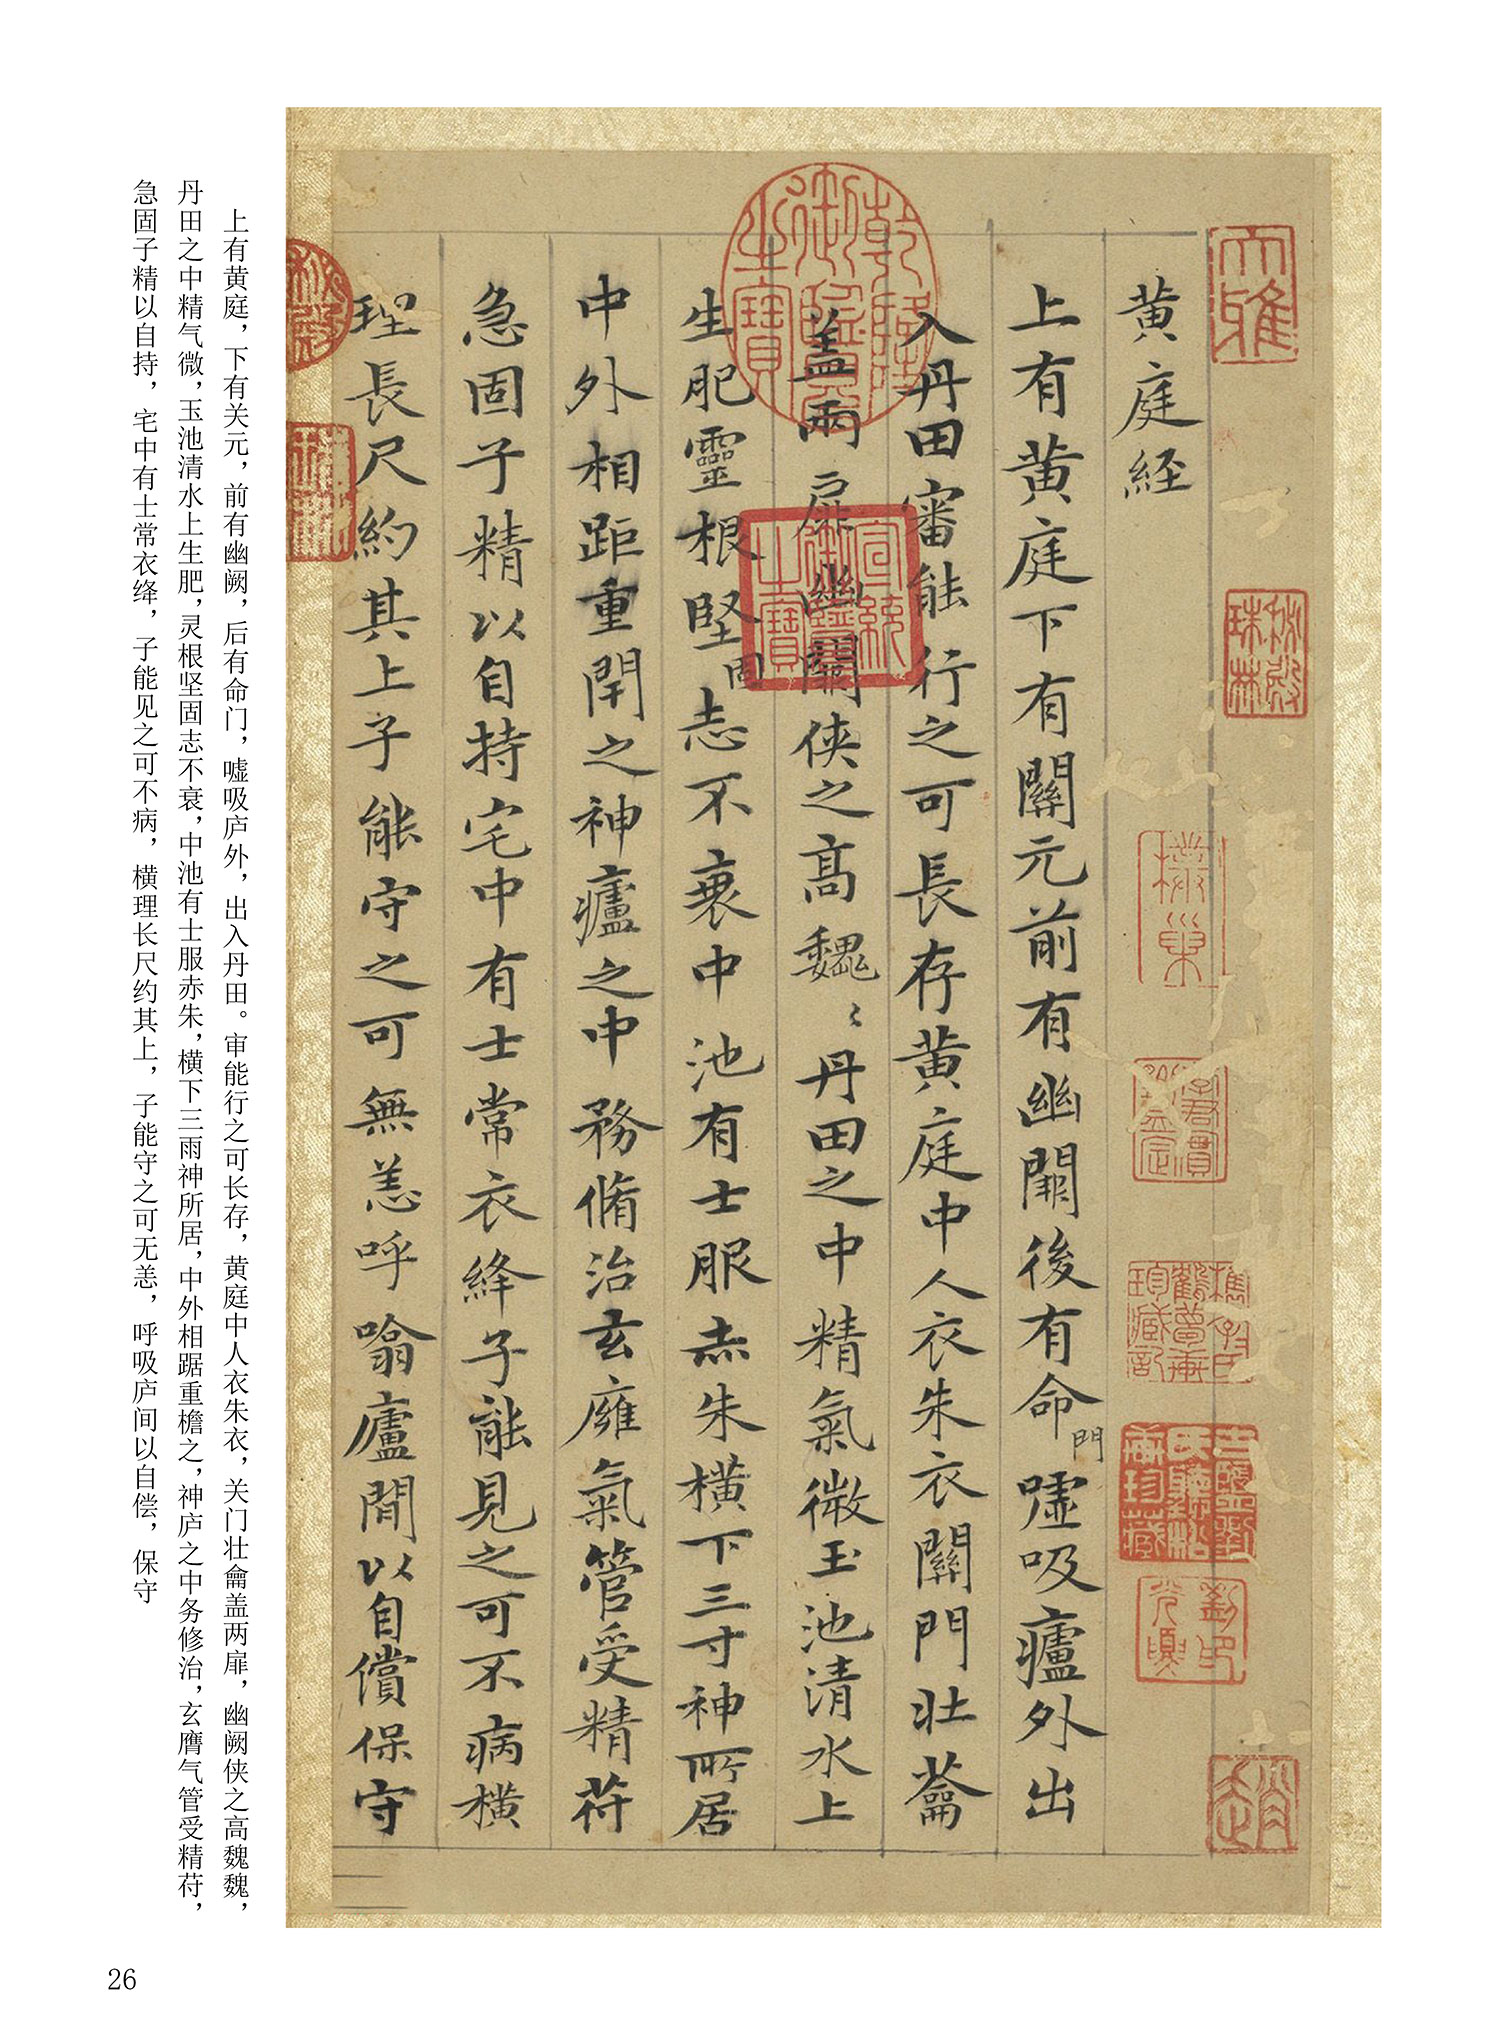 黄庭経
上有黄庭下有關元前有幽闕後有命門嘘吸廬外出
入丹田審能行之可長存黄庭中人衣朱衣關門壮蘥
盖兩扉幽闕侠之高魏〻丹田之中精氣微玉池清水上
生肥靈根堅固志不衰中池有士服赤朱横下三寸神所居
中外相距重閇之神廬之中務脩治玄癕氣管受精苻
急固子精以自持宅中有士常衣絳子能見之可不病横
理長尺約其上子能守之可無恙呼噏廬間以自償保守
大雅
乾隆御覽之寶
宣統御覽之寶
秘殿珠林
上有黄庭，下有关元，前有幽阙，后有命门，嘘吸庐外，出入丹田。审能行之可长存，黄庭中人衣朱衣，关门壮龠盖两扉，幽阙侠之高魏魏，
丹田之中精气微，玉池清水上生肥，灵根坚固志不衰，中池有士服赤朱，横下三雨神所居，中外相踞重檐之，神庐之中务修治，玄膺气管受精苻，
急固子精以自持，宅中有士常衣绛，子能见之可不病，横理长尺约其上，子能守之可无恙，呼吸庐间以自偿，保守
26